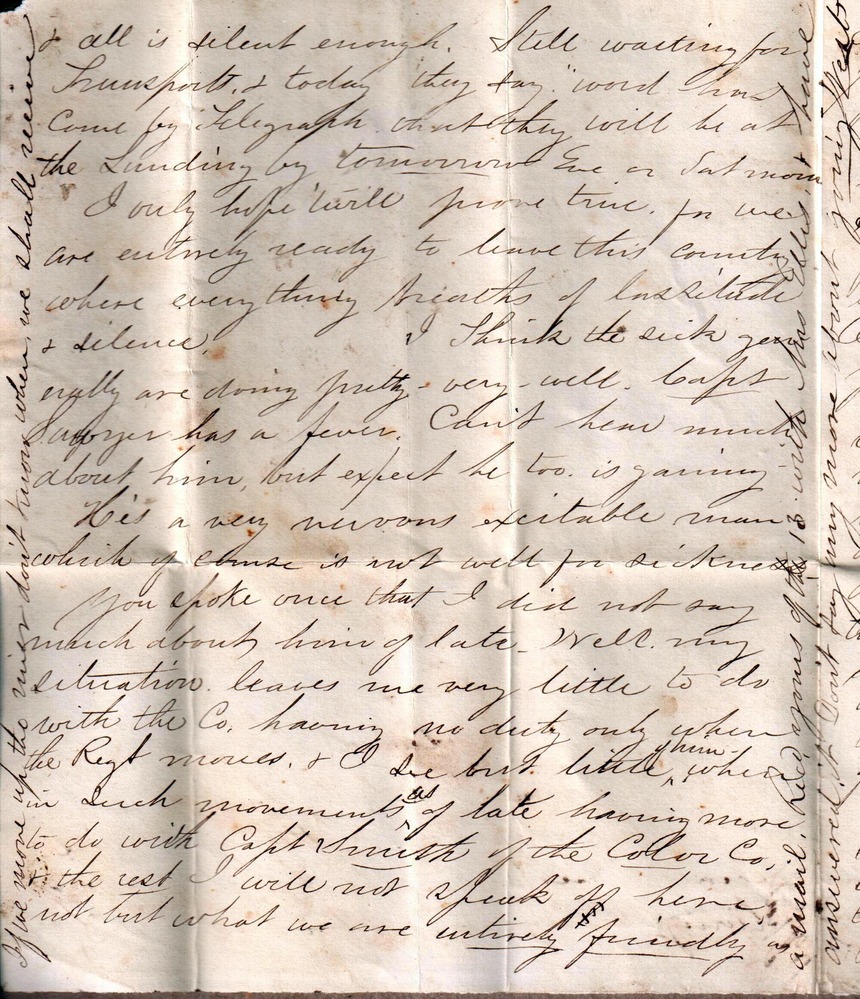 & all is silent enough. Still waiting for
Transports, & today they say "word has
Come by Telegraph that they will be at
the Landing by tomorrow Eve or Sat morn
I only hope 'twill prove true. for we
are entirely ready to leave this country
where everything breaths of lassitude
& silence. I think the sick gen
erally are doing pretty - very - well. Capt
Sawyer has a fever. Can't hear much
about him, but expect he too. is gaining -
He's a very nervous excitable man
which of course is not well for sickness
You spoke once that I did not say
much about him of late - Well. my
situation. leaves me very little to do
with the Co, having no duty only when
the Regt moves. & I see but little of him - when
in such movements as of late having more
to do with Capt Smith of the Color Co,
& the rest I will not speak of here
not but what we are entirely friendly as
If we move up the river don't know when we shall receive
a mail. Recd yours of the 13 with Mrs Ellis, & have
answered it. Don't say any more about going West